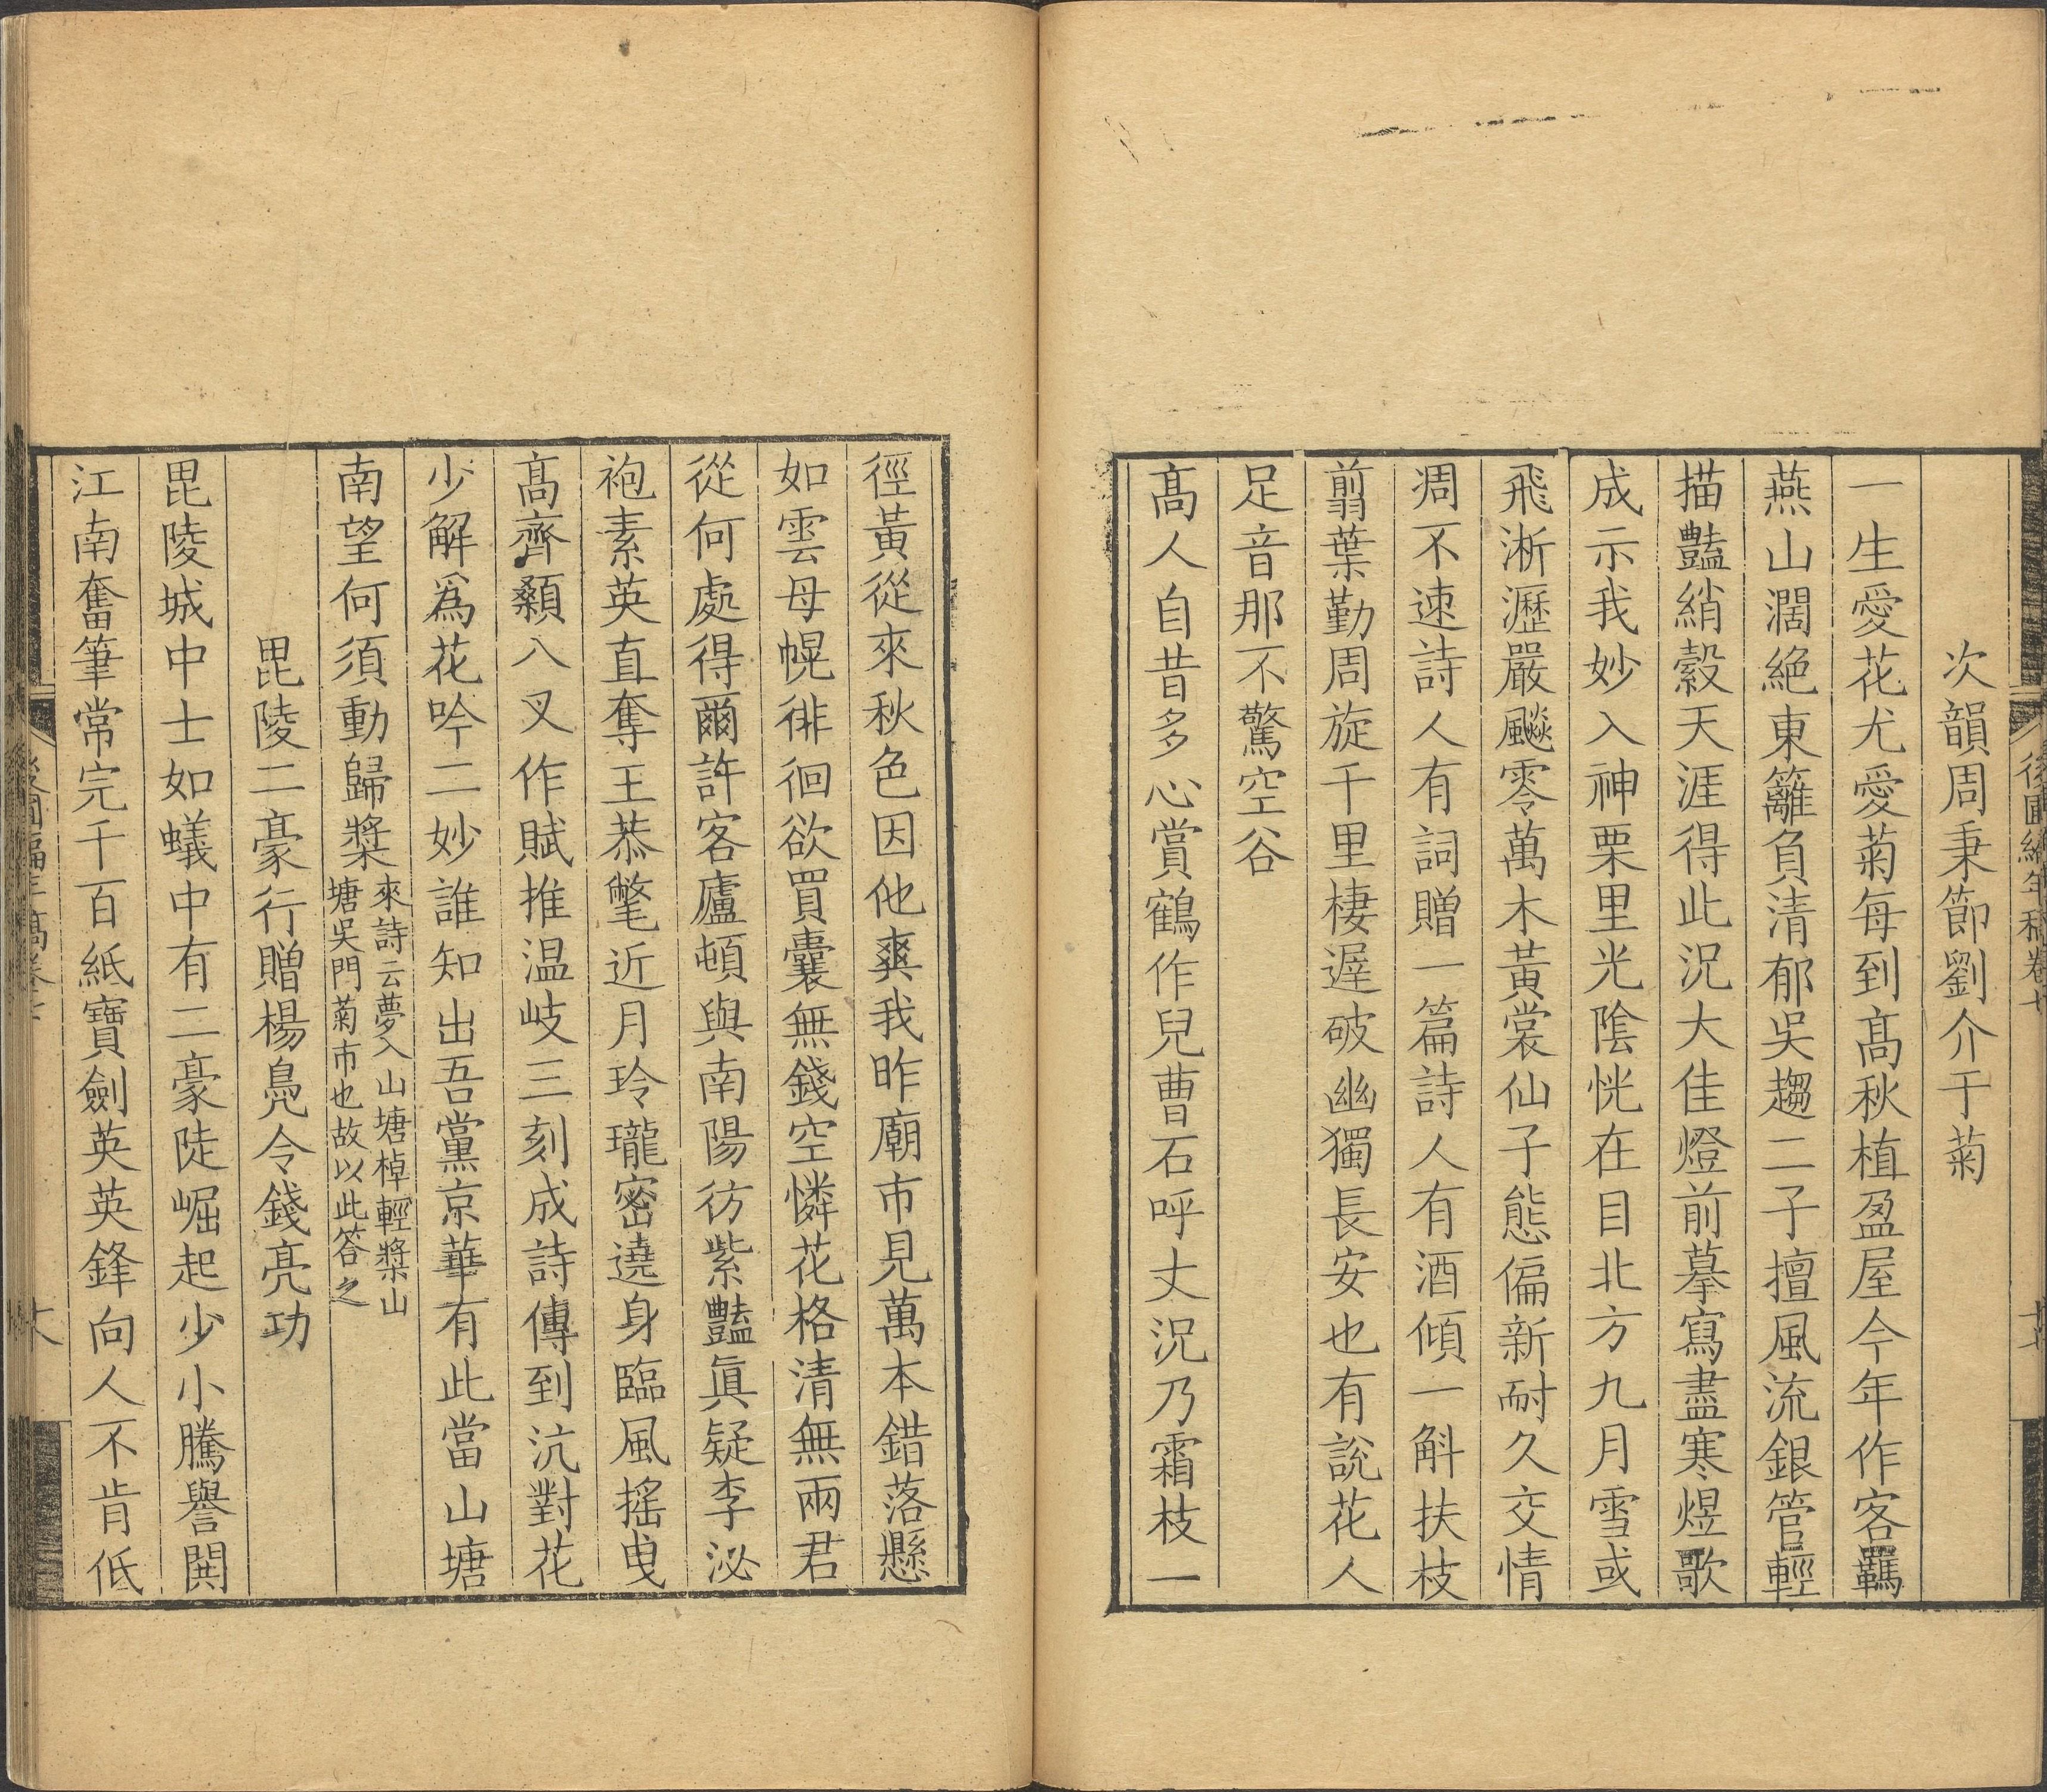 次韻周秉節劉介于菊
一生愛花尤愛菊每到高秋植盈屋今年作客羈
燕山濶絕東籬負清郁吳趨二子擅風流銀管輕
描豔綃縠天涯得此況大佳燈前摹寫盡寒煜歌
成示我妙入神栗里光陰恍在目北方九月雪或
飛淅瀝嚴飈零萬木黃裳仙子態偏新耐久交情
凋不速詩人有詞贈一篇詩人有酒傾一斛扶枝
翦葉勤周旋千里棲遲破幽獨長安也有說花人
足音那不驚空谷
高人自昔多心賞鶴作兒曹石呼丈況乃霜枝一
徑黃從來秋色因他爽我昨廟市見萬本錯落懸
如雲母幌徘徊欲買囊無錢空憐花格清無兩君
從何處得爾許客廬頓與南陽彷紫豔眞疑李泌
袍素英直奪王恭氅近月玲瓏密遶身臨風搖曳
高齊顙八叉作賦推温岐三刻成詩傳到沆對花
少解爲花吟二妙誰知出吾黨京華有此當山塘
南望何須動歸槳來詩云夢入山塘棹輕槳山
塘吳門菊市也故以此答之
毘陵二豪行贈楊鳧令錢亮功
毘陵城中士如蟻中有二豪陡崛起少小騰譽閧
江南奮筆常完千百紙寶劍英英鋒向人不肯低
後圃編年稿卷七